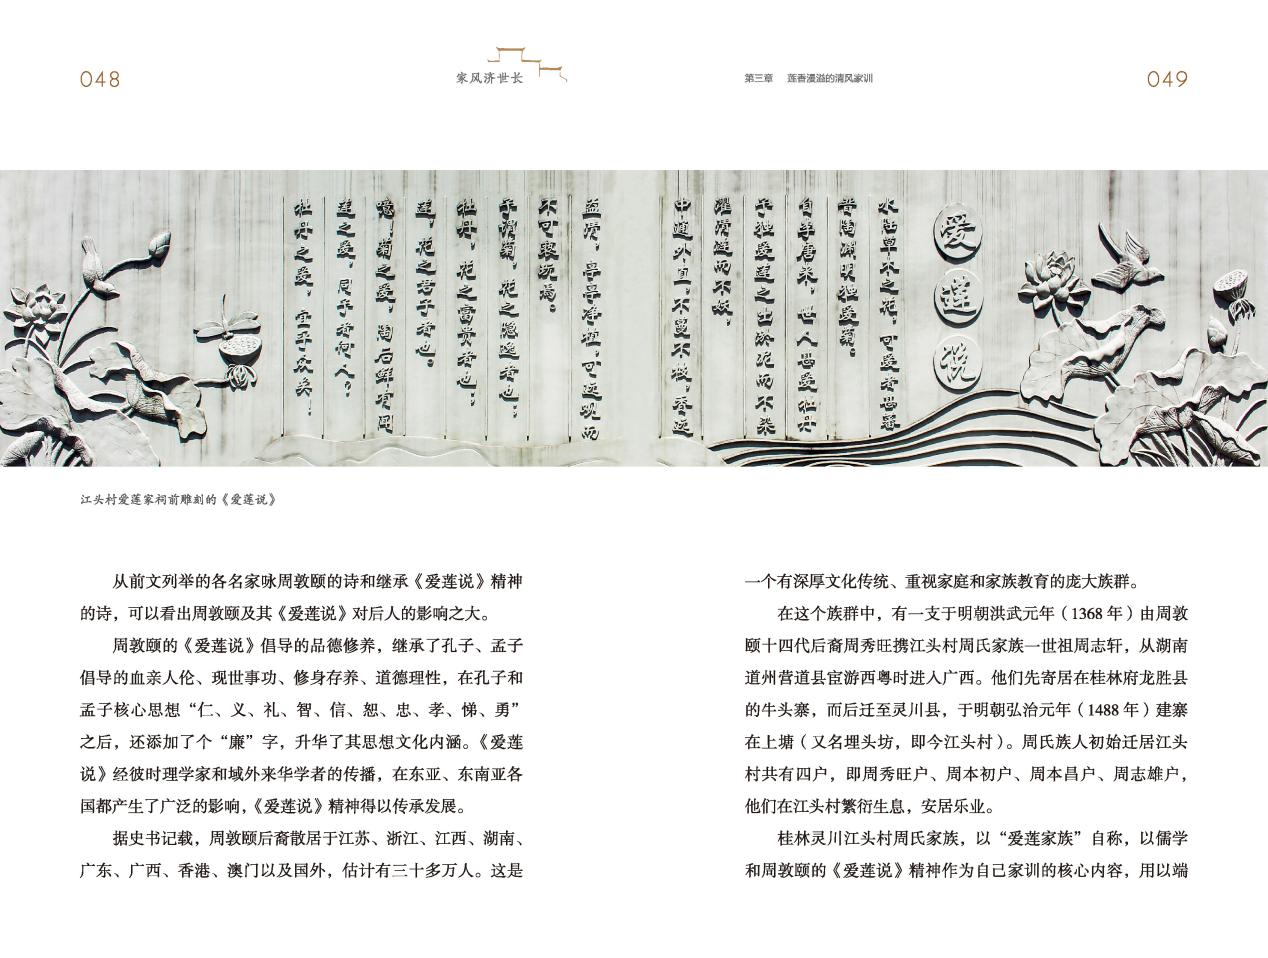 048
家风济世长
第三章 莲香漫溢的清风家训
049
爱莲说
水陆草木之花，可爱者甚蕃
晋陶渊明独爱菊。
自李唐来，世人甚爱牡丹
予独爱莲之出淤泥而不染
濯清涟而不妖，
中通外直，不蔓不枝，香远
益清，亭亭净植，可远观而
不可亵玩焉。
予谓菊，花之隐逸者也；
牡丹，花之富贵者也；
莲，花之君子者也。
噫！菊之爱，陶后鲜有闻
莲之爱，同予者何人？
牡丹之爱，宜乎众矣！
江头村爱莲家祠前雕刻的《爱莲说》
从前文列举的各名家咏周敦颐的诗和继承《爱莲说》精神
的诗，可以看出周敦颐及其《爱莲说》对后人的影响之大。
周敦颐的《爱莲说》倡导的品德修养，继承了孔子、孟子
倡导的血亲人伦、现世事功、修身存养、道德理性，在孔子和
孟子核心思想“仁、义、礼、智、信、恕、忠、孝、悌、勇”
之后，还添加了个“廉”字，升华了其思想文化内涵。《爱莲
说》经彼时理学家和域外来华学者的传播，在东亚、东南亚各
国都产生了广泛的影响，《爱莲说》精神得以传承发展。
据史书记载，周敦颐后裔散居于江苏、浙江、江西、湖南、
广东、广西、香港、澳门以及国外，估计有三十多万人。这是
一个有深厚文化传统、重视家庭和家族教育的庞大族群。
在这个族群中，有一支于明朝洪武元年（1368 年）由周敦
颐十四代后裔周秀旺携江头村周氏家族一世祖周志轩，从湖南
道州营道县宦游西粤时进入广西。他们先寄居在桂林府龙胜县
的牛头寨，而后迁至灵川县，于明朝弘治元年（1488 年）建寨
在上塘（又名埋头坊，即今江头村）。周氏族人初始迁居江头
村共有四户，即周秀旺户、周本初户、周本昌户、周志雄户，
他们在江头村繁衍生息，安居乐业。
桂林灵川江头村周氏家族，以“爱莲家族”自称，以儒学
和周敦颐的《爱莲说》精神作为自己家训的核心内容，用以端